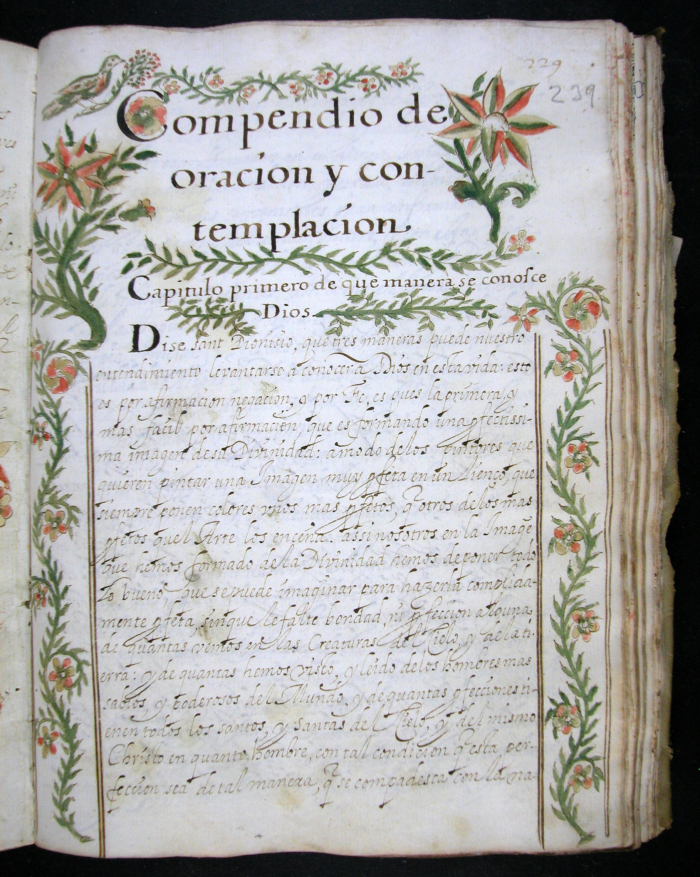 229
239
Compendio de
oracion y con-
templacion
Capitulo primero de que manera se conosce
Dios.
Dise Sant Dionisio, que tres maneras puede nuestro
entendimiento levantarse a conoscer a Dios en esta vida: esto
es por afirmacion negacion, y por Fe, es pues la primera, y
mas facil por afirmacion, que es formando una pfectissi-
ma imagen de la Divinidad: a modo de los Pintores que
quieren pintar una Imagen muy pfeta en un Lienço, que
siempre ponen colores vivos mas pfetos, q otros de los mas
pfetos que l Arte los enseña. assi nosotros en la Image
que hemos formado de la Divinidad hemos de poner todo
lo bueno que se puede imaginar para hazerla complida-
mente pfeta, sin que le falte bondad, ni pfeccion alguna
de quantas vemos en las Creaturas del Cielo, y de la ti-
erra: y de quantas hemos visto, y leido de los hombres mas
sabios, y poderosos del Mundo, y de quantas pfecciones ti-
enen todos los santos, y Santas del Cielo, y del mismo
Christo en quanto hombre, con tal condicion q esta per-
feccion sea de tal manera, q se compadesca con la na-